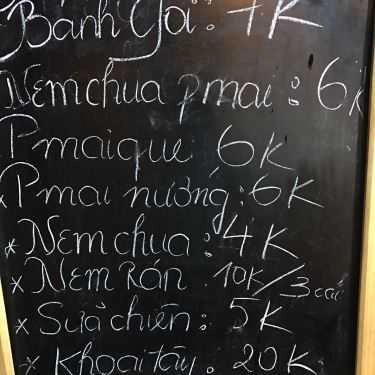 Bánh Gối : 7K
Nem chua pmai : 6K
Pmai que 6K
Pmai nướng : 6K
* Nem chua : 4K
* Nem Rán . 10K/3 cái
* Sữa chiên : 5K
* Khoai tây : 20K